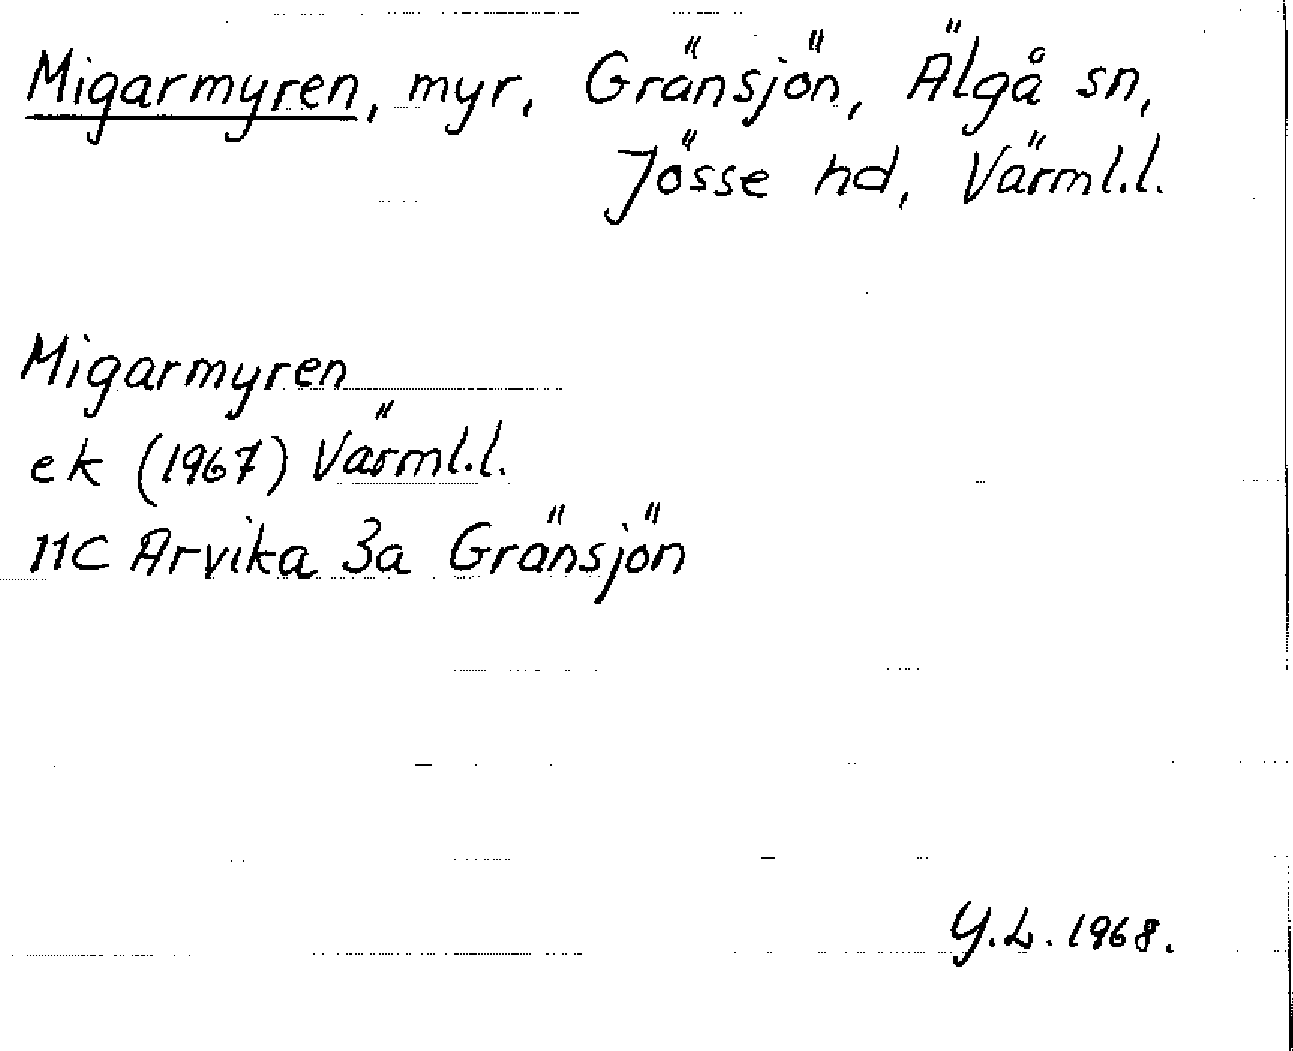 Migarmyren, myr, Gränsjön, Älgå sn,
Jösse hd, Värml.l.
Migarmyren
ek (1967) Värml.l.
11C Arvika 3a Gränsjön
Y.L. 1968.